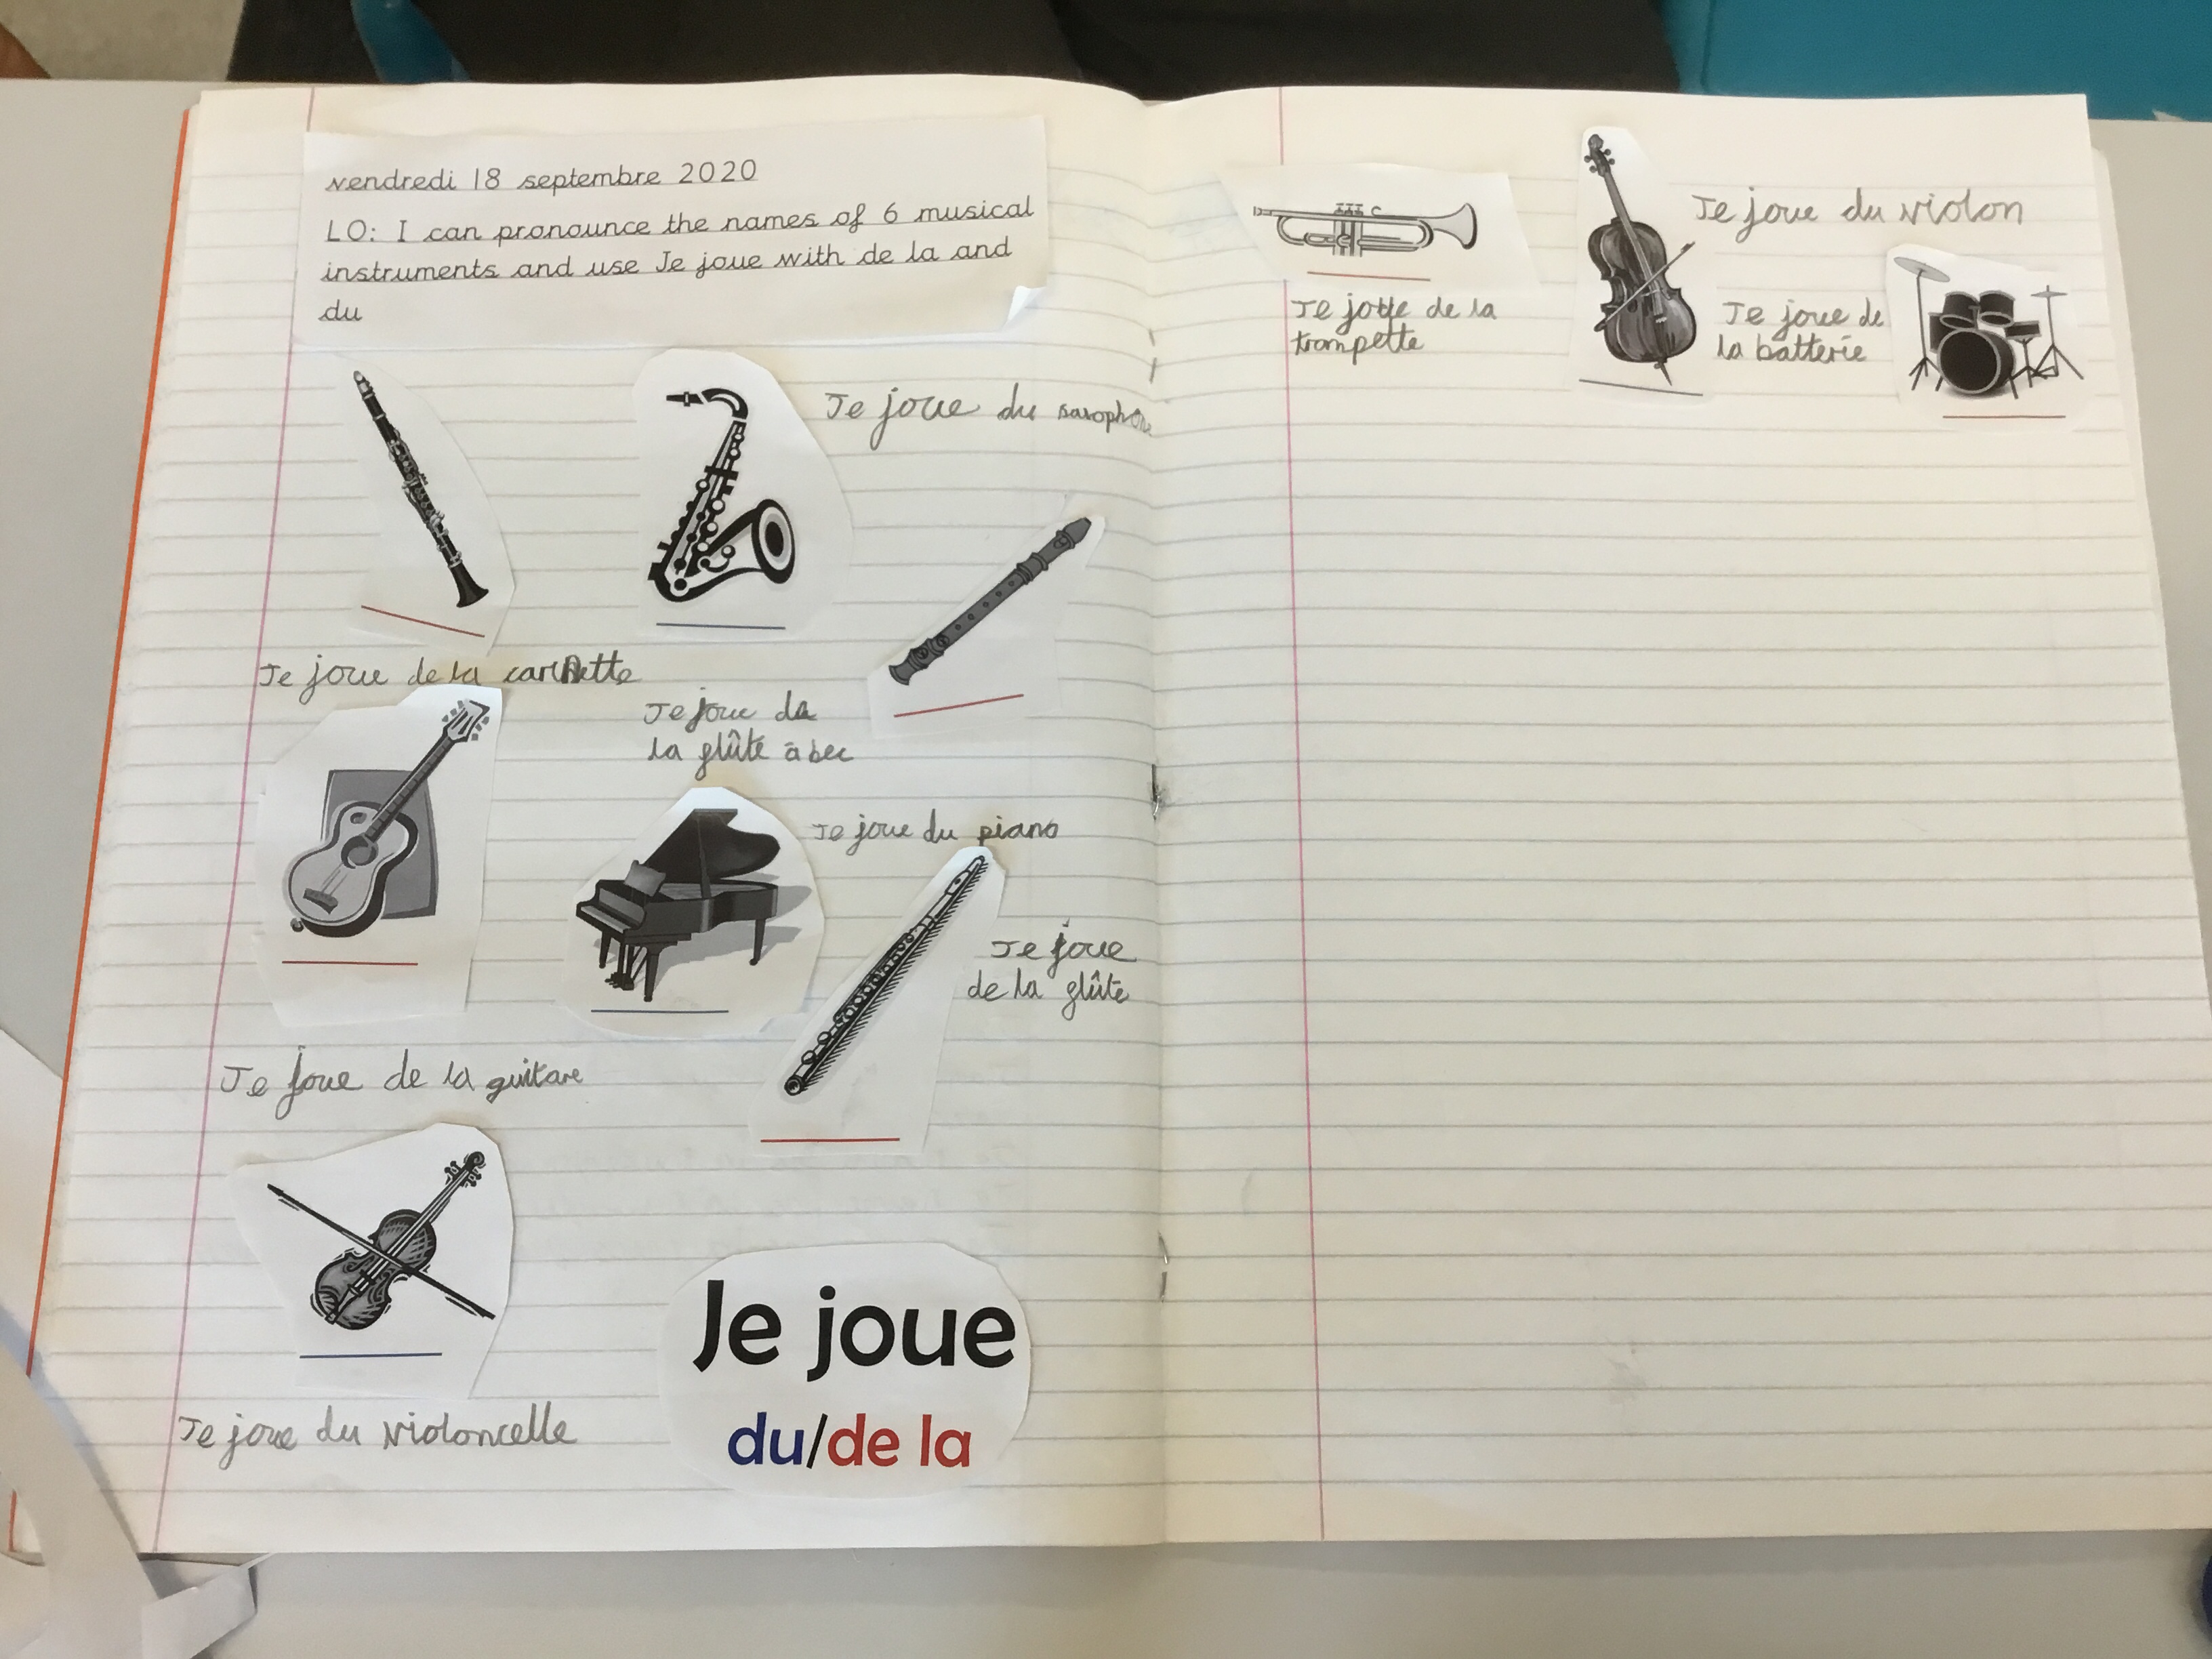 vendredi 18 septembre 2020
LO: I can pronounce the names of 6 musical
instruments and use Je joue with de la and
du
Je joue du saxophone
Je joue de la
Je joue da
la glûte à bec
Je joue du piano
Je joue
de la glûte
Je joue de la guitare
Je joue du violoncelle
Je joue
du/de la
Je joue de la
trompette
Je joue du violon
Je joue de
la batterie